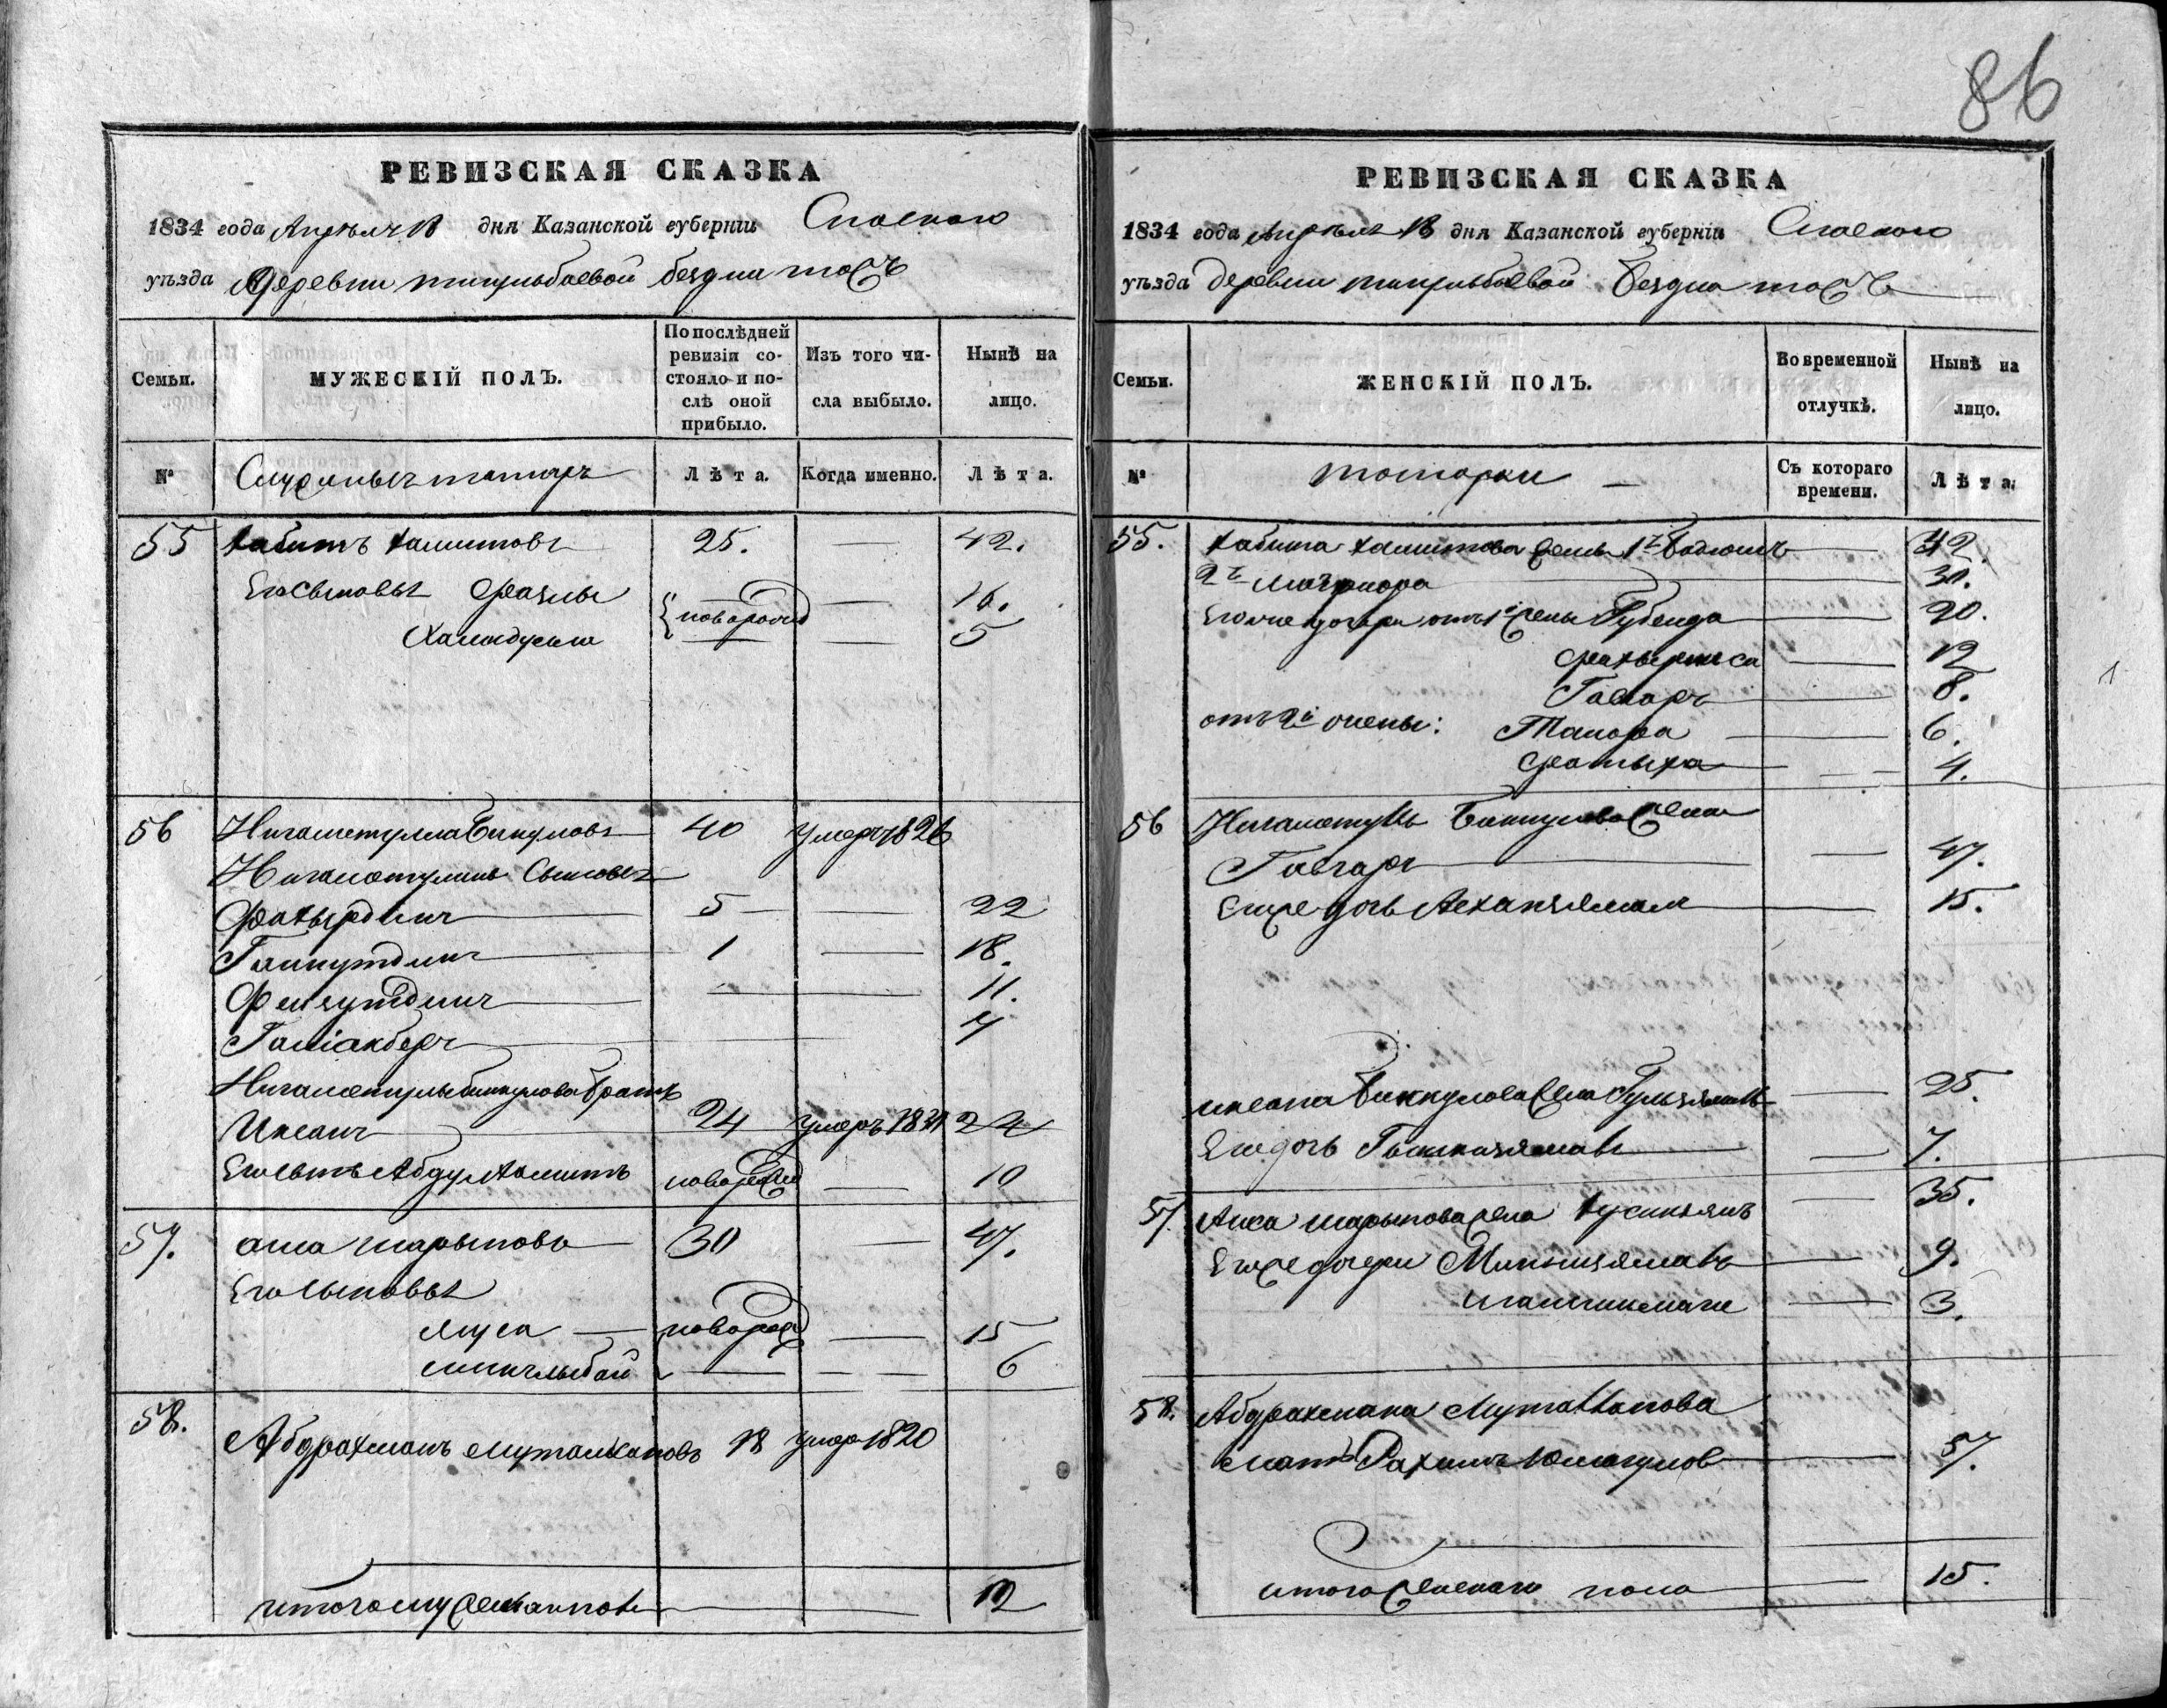 86
РЕВИЗСКАЯ СКАЗКА
1834 года Апреля 18 дня Казанской губерніи Спаскаго
уѣзда Деревни тинчальбаевой бездна тожъ
Семьи.
МУЖЕСКІЙ ПОЛЪ.
По послѣдней ревизіи со-
стояло и по-
слѣ оной
прибыло.
Изъ того чи-
сла выбыло.
Нынѣ на
лицо.
№
Служилыхъ татаръ
Лѣта.
Когда именно.
Лѣта.
55 Хабитъ Хамитовъ 25. — 42.
Его сыновья Фазлы новорожд — 16.
Хамидулла — — 5
56 Нигаметулла Бикуловъ 40 умеръ 1826
Нигаметуллины Сыновья
Фахырдинъ 5 — 22
Гайнутдинъ 1 — 18.
Фейзутдинъ — — 11.
Галіакберъ — 7
Нигаметуллы бикулова братъ
Ихсанъ 24 умеръ 1831 24
Его сынъ Абдулхамитъ новорожд — 10
57. Аиса шарыповъ 30 — 47.
Его Сыновья
Муса — новорожд — 15
минлыбай — — — 6
58. Абдрахманъ муталлаповъ 18 умер 1820
итого мужеска пола — 12
РЕВИЗСКАЯ СКАЗКА
1834 года Апреля 18 дня Казанской губерніи Спаскаго
уѣзда деревни тинчальбаевой бездна тожъ
Семьи.
ЖЕНСКІЙ ПОЛЪ.
Во временной
отлучкѣ.
Нынѣ на
лицо.
№
татарки —
Съ котораго
времени.
Лѣта.
55. Хабита Хамитова жены 1я — 42
2я — 30.
Его же дочери отъ 1й жены Губейда — 20.
Фахверниса — 12
Гавгаръ — 8.
отъ 2й жены: — 6.
Фатыха — 4.
56 Нигаметуллы Биккулова жена
Гавгаръ — 47.
Его же дочь — 15.
ихсана Биккулова жена Гульзямал — 25.
Его дочь — 7.
57. Аиса шарыпова жена Хусниямъ — 35.
Его же дочери Минзямал — 9.
— 3.
58. Абдрахмана Муталлапова
мать Рахима Юмагулов — 57.
итого женскаго пола — 15.